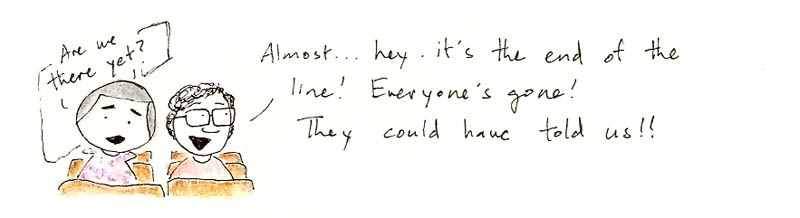 Are we
there yet?
Almost... hey. it's the end of the
line! Everyone's gone!
They could have told us!!